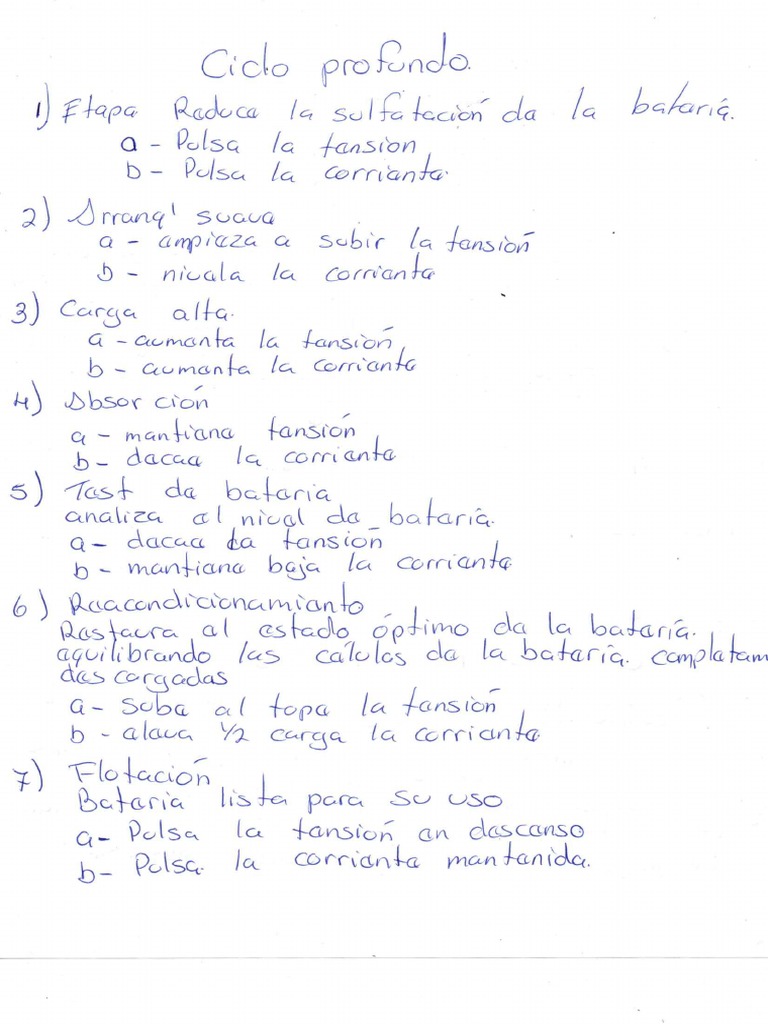 Ciclo profundo.
1) Etapa Reduce la sulfatación de la batería.
a - Pulsa la tensión
b - Pulsa la corriente.
2) Arranq' suave
a - empieza a subir la tensión
b - nivela la corriente
3) Carga alta.
a - aumenta la tensión
b - aumenta la corriente
4) Absorción
a - mantiene tensión
b - decae la corriente
5) Test de bateria
analiza el nivel de batería.
a - decae la tensión
b - mantiene baja la corriente
6) Reacondicionamiento
Restaura al estado óptimo de la batería.
equilibrando las cálulos de la batería. completam
descargadas
a - Sube al tope la tensión
b - eleva 1/2 carga la corriente
7) Flotación
Bateria lista para su uso
a - Pulsa la tensión en descanso
b - Pulsa. la corriente mantenida.